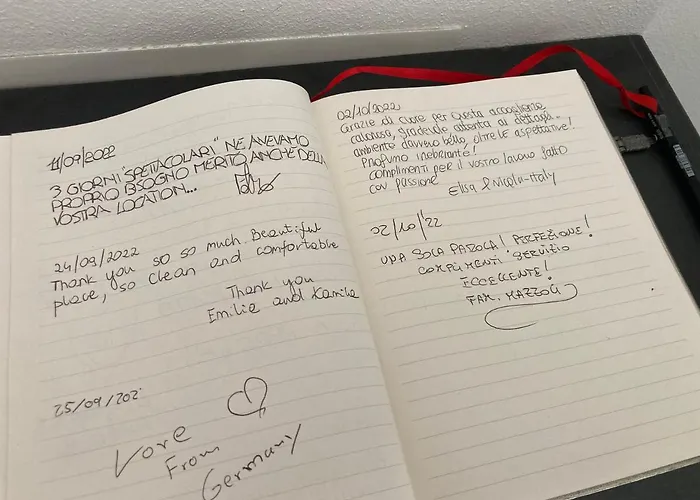 11/09/2022
3 GIORNI "SPETTACOLARI" NE AVEVAMO
PROPRIO BISOGNO MERITO ANCHE DELLA
VOSTRA LOCATION...
24/09/2022
Thank you so so much. Beautiful
place, so clean and comfortable
Thank you
Emilia and Kamila
25/09/202
From
Germany
02/10/2022
Grazie di cuore per questa accoglienza
calorosa, gradevole attenta ai dettagli..
ambiente davvero bello, oltre le aspettative!
Profumo inebriante!
complimenti per il vostro lavoro fatto
con passione
Elisa & Nicola-Italy
02/10/'22
UNA SOLA PAROLA! PERFEZIONE!
COMPLIMENTI SERVIZIO
ECCELLENTE!
FAM. MAZZOLI